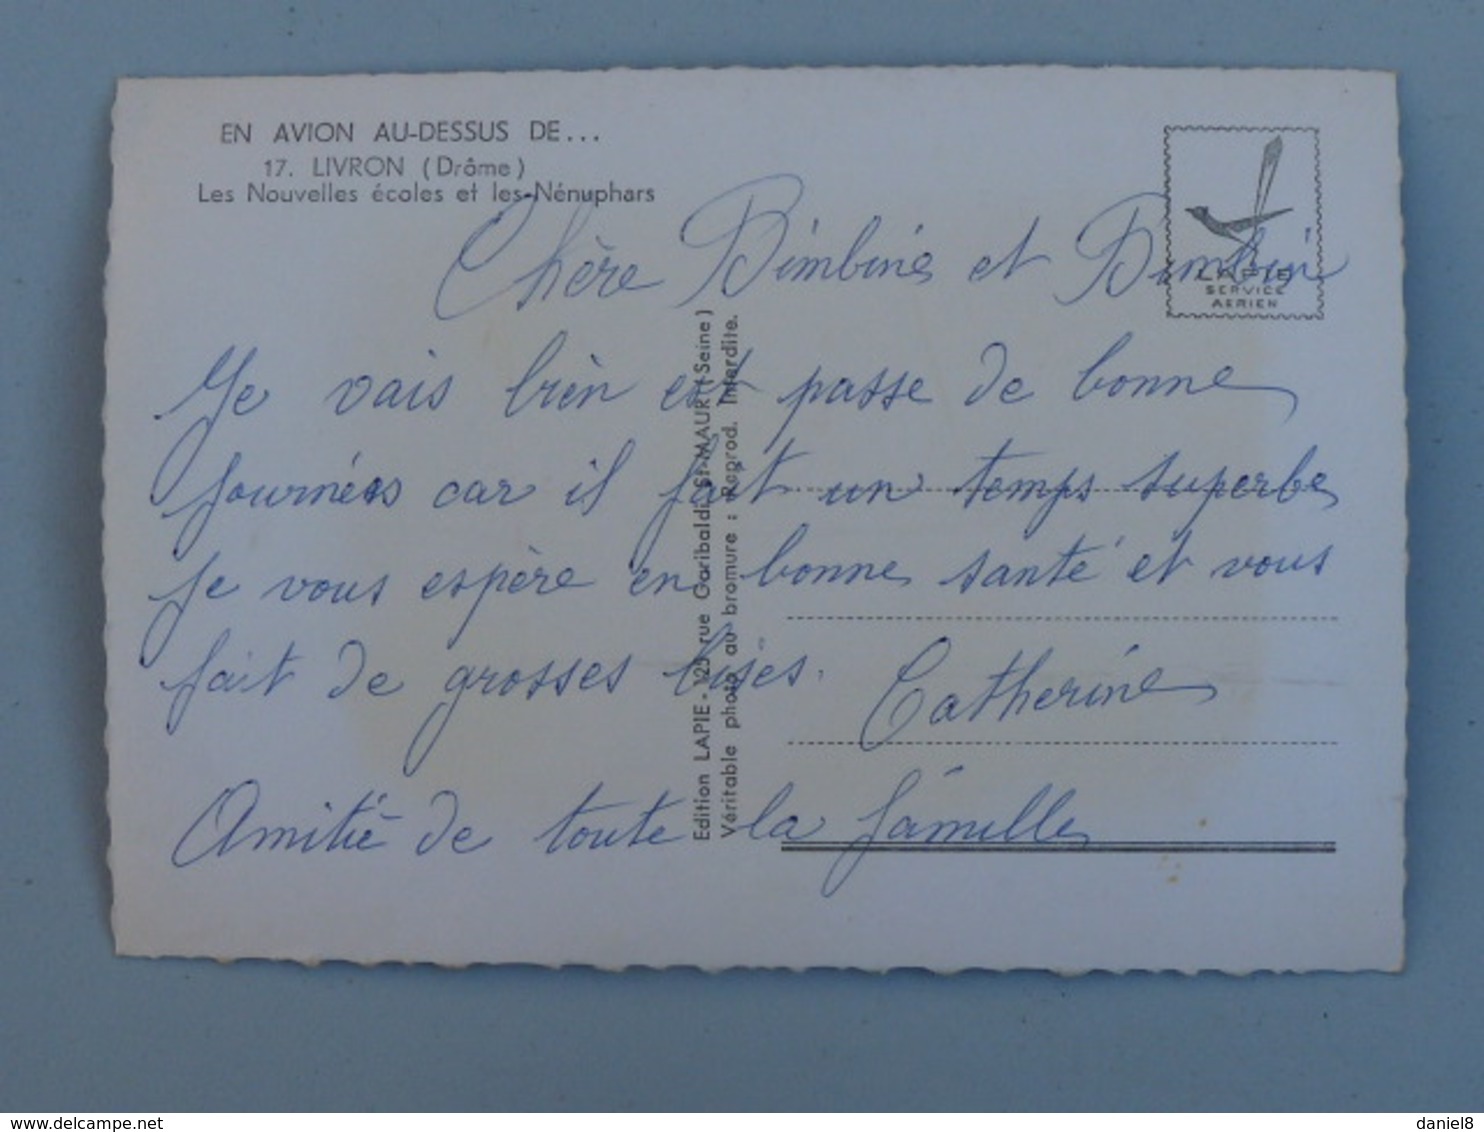 EN AVION AU-DESSUS DE...
17. LIVRON (Drôme)
Les Nouvelles écoles et les Nénuphars
LAPIE
SERVICE
AERIEN
Chère Bimbine et Bimbin
Je vais bien est passe de bonne
journées car il fait un temps superbe
je vous espère en bonne santé et vous
fait de grosses bises.
Catherine
Amitié de toute la famille
Edition LAPIE - 125, rue Garibaldi, St-MAUR (Seine)
Véritable photo au bromure : Reprod. Interdite.
daniel8